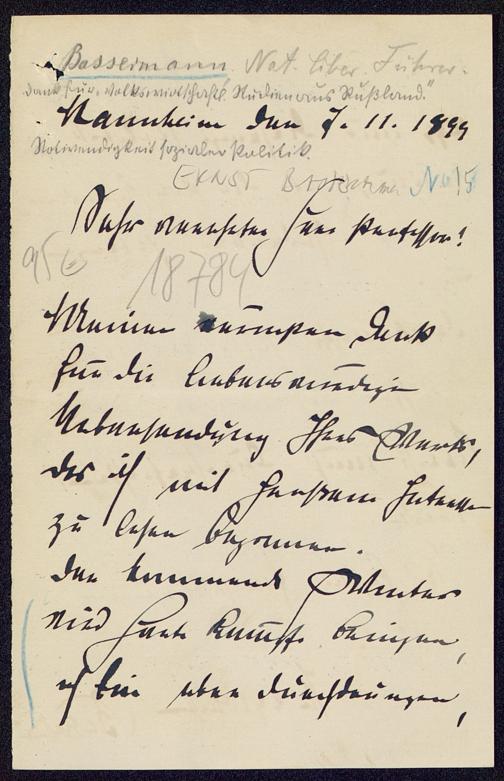 Bassermann. Nat. liber. Führer.
Dank für „Volkswirtschaftl. Studien aus Rußland."
Mannheim den 7. 11. 1899
Notwendigkeit sozialer Politik.
ERNST Bassermann No 15
Sehr verehrter Herr Professor!
18784
Meinen wärmsten Dank
für die liebenswürdige
Uebersendung Ihres Werks,
das ich mit Interesse
zu lesen begonnen.
Der kommende Winter
wird harte Kämpfe bringen,
ich bin aber durchdrungen,